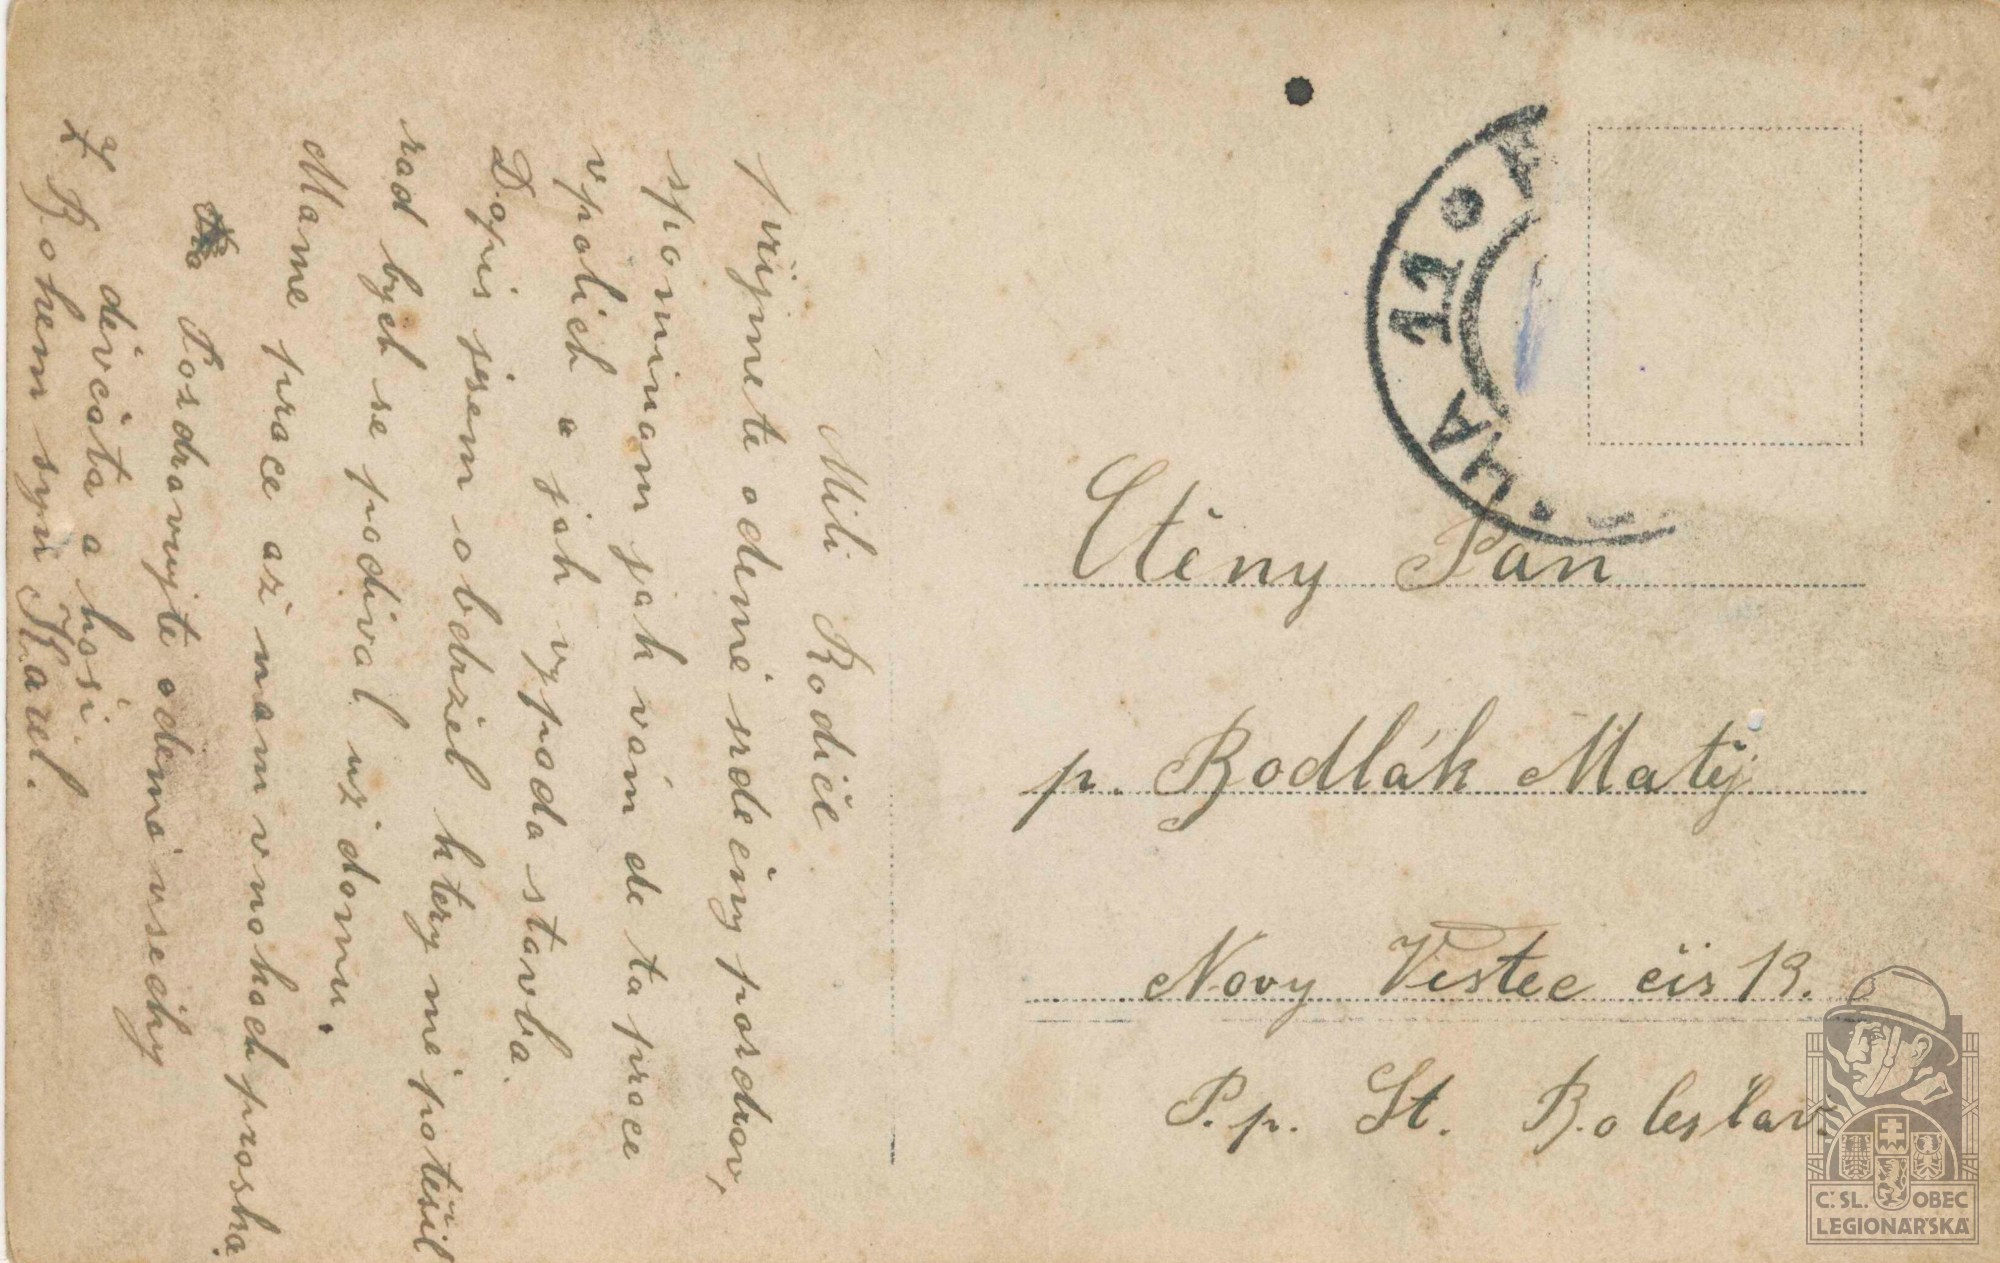 Mili Rodiče
přijmete odemé srdečny posdrav,
spominam jak vám de ta prace
v polich a jak vypada stavba.
Dopis jsem obdržel ktery mě potěšil
rad bych se podival už domu.
Mame prace až nam v nohach praska.
Posdravujte odemě všechy
děvčata a hoši.
Z Bohem syn Karel.
11
Ctěny Pan
p. Bodlák Matěj
Novy Vestec čis 13.
P.p. St. Boleslav.
Č. SL. OBEC
LEGIONÁŘSKÁ